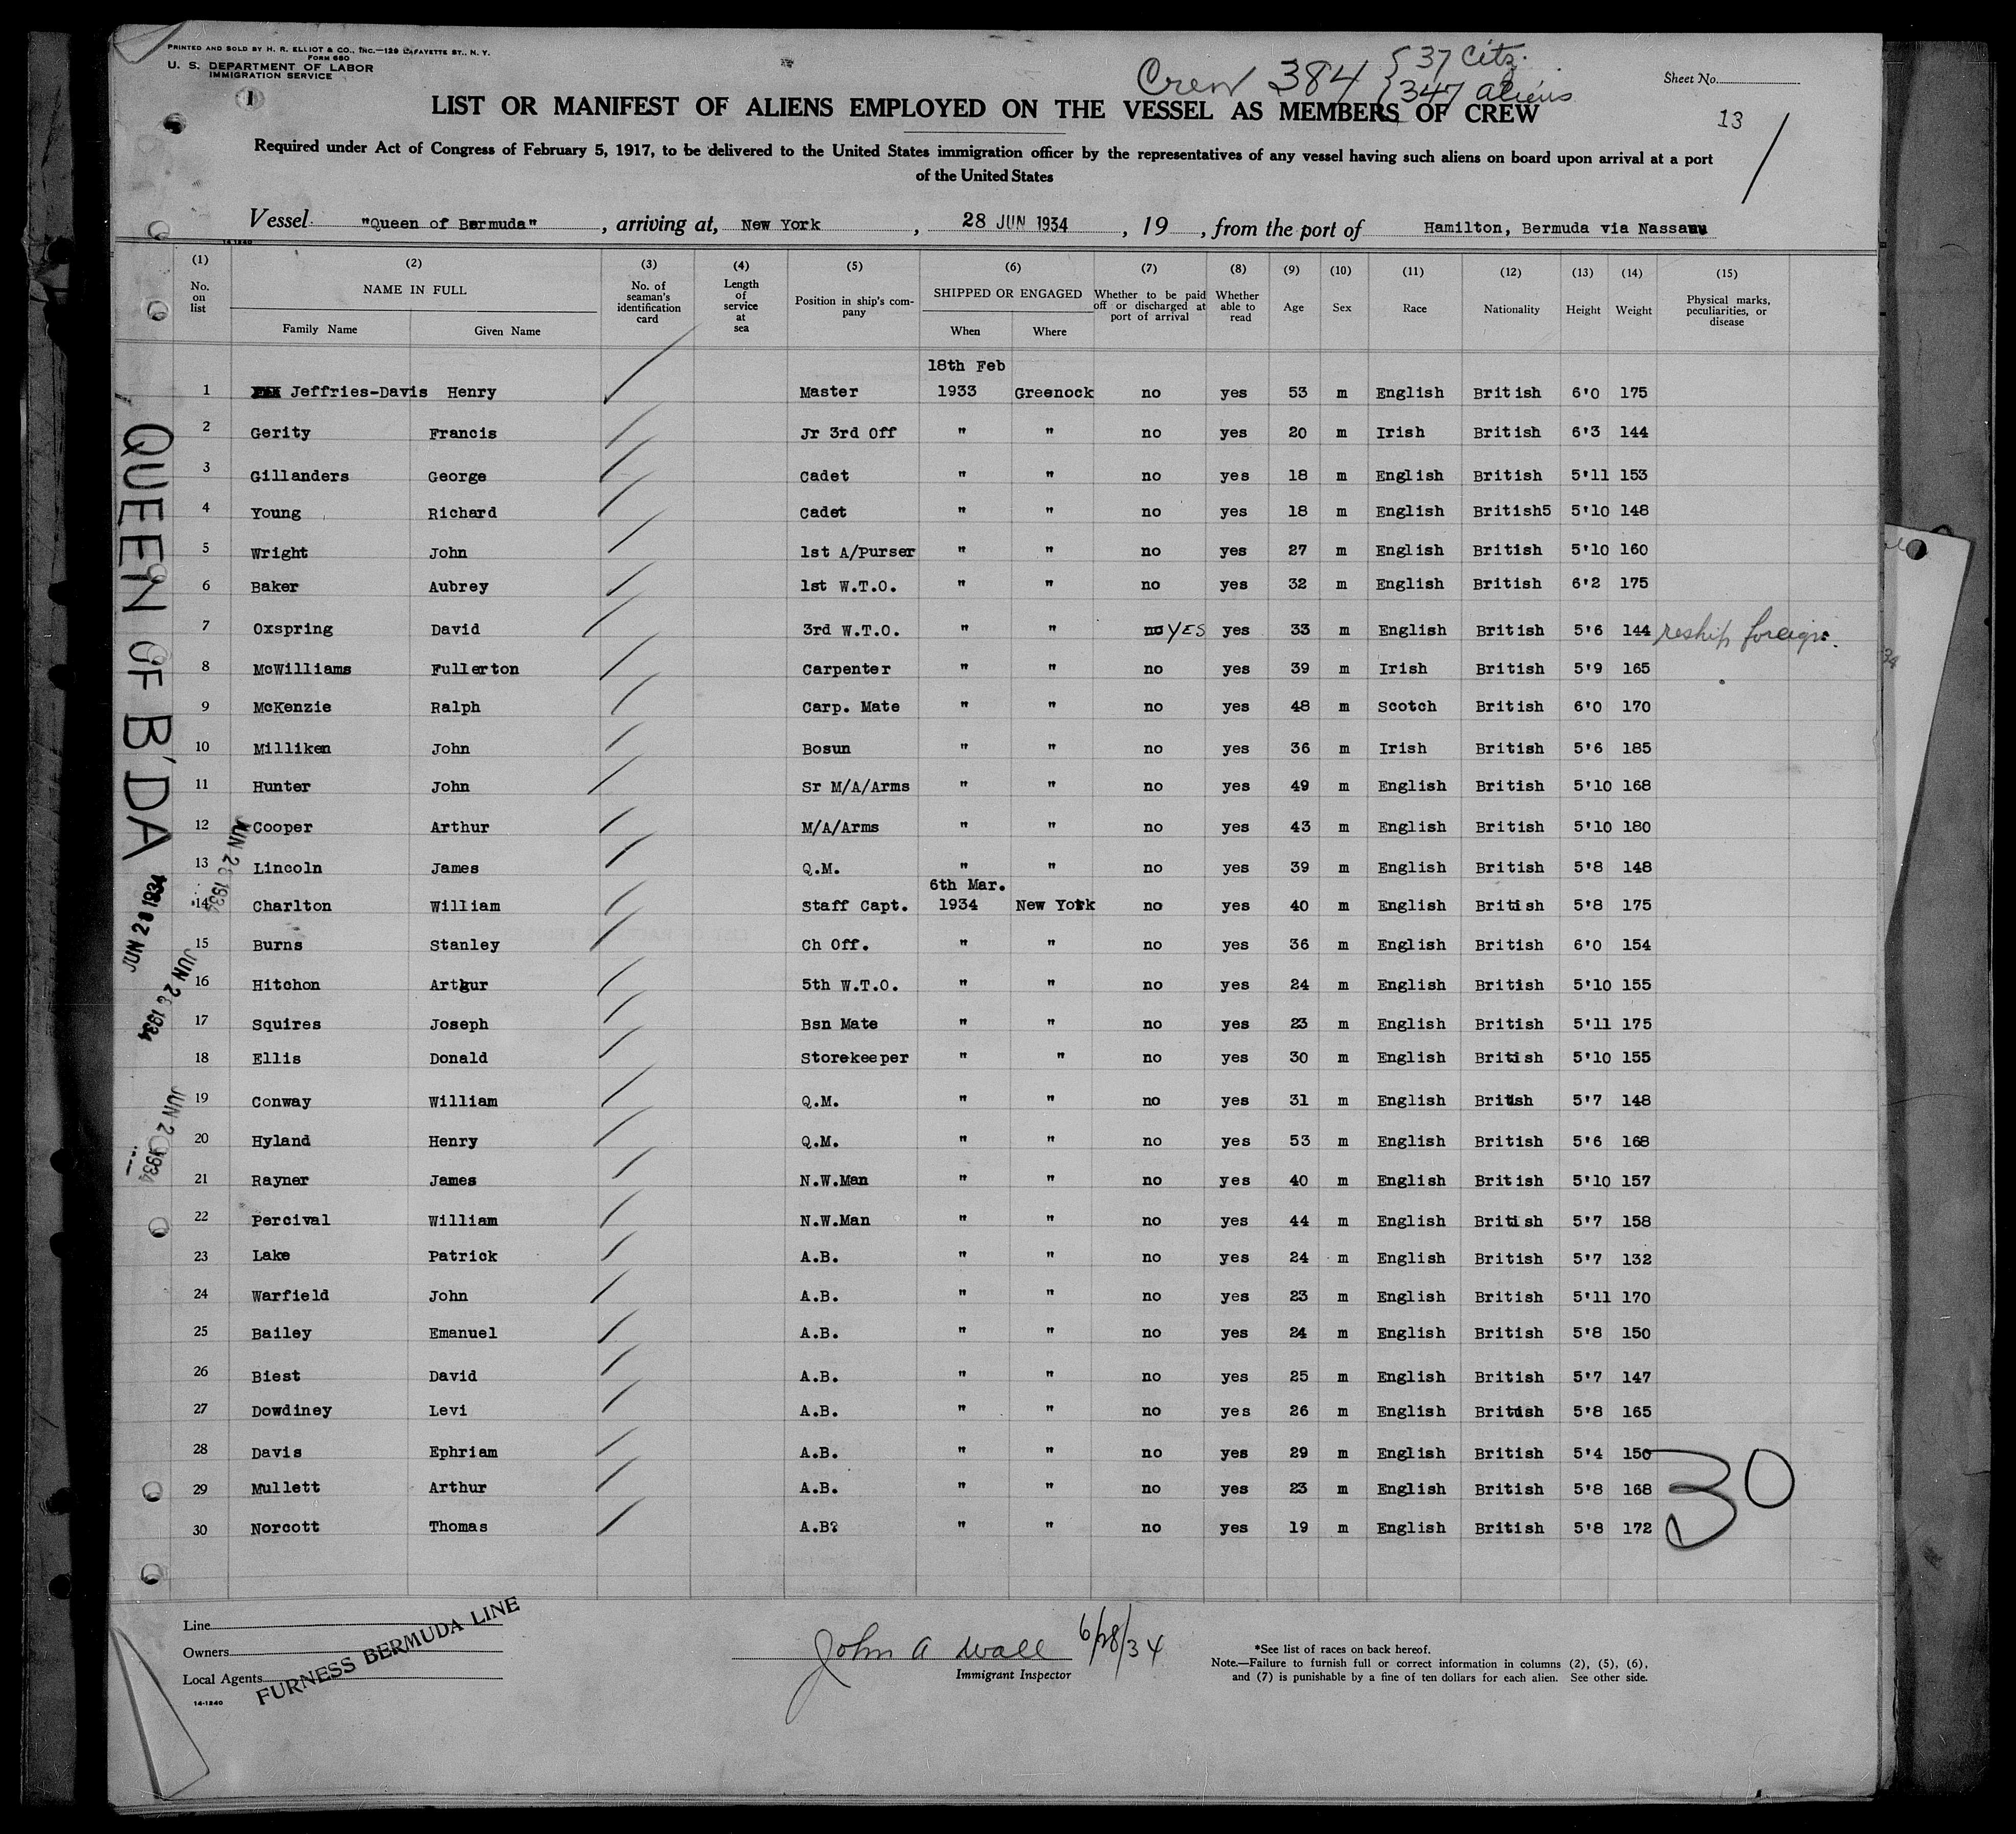 PRINTED AND SOLD BY H. R. ELLIOT & CO., INC.—129 LAFAYETTE ST., N. Y.
FORM 680
U. S. DEPARTMENT OF LABOR
IMMIGRATION SERVICE
1
Crew 384 { 37 Citz.
{ 347 aliens
Sheet No.
13
LIST OR MANIFEST OF ALIENS EMPLOYED ON THE VESSEL AS MEMBERS OF CREW
Required under Act of Congress of February 5, 1917, to be delivered to the United States immigration officer by the representatives of any vessel having such aliens on board upon arrival at a port
of the United States
Vessel "Queen of Bermuda", arriving at, New York, 28 JUN 1934, 19 , from the port of Hamilton, Bermuda via Nassau
14-1240
(1) (2) (3) (4) (5) (6) (7) (8) (9) (10) (11) (12) (13) (14) (15)
No. on list NAME IN FULL Family Name Given Name No. of seaman's identification card Length of service at sea Position in ship's company SHIPPED OR ENGAGED When Where Whether to be paid off or discharged at port of arrival Whether able to read Age Sex Race Nationality Height Weight Physical marks, peculiarities, or disease
18th Feb
1 Jeffries-Davis Henry Master 1933 Greenock no yes 53 m English British 6'0 175
2 Gerity Francis Jr 3rd Off " " no yes 20 m Irish British 6'3 144
3 Gillanders George Cadet " " no yes 18 m English British 5'11 153
4 Young Richard Cadet " " no yes 18 m English British5 5'10 148
5 Wright John 1st A/Purser " " no yes 27 m English British 5'10 160
6 Baker Aubrey 1st W.T.O. " " no yes 32 m English British 6'2 175
7 Oxspring David 3rd W.T.O. " " no YES yes 33 m English British 5'6 144 reship foreign.
8 McWilliams Fullerton Carpenter " " no yes 39 m Irish British 5'9 165
9 McKenzie Ralph Carp. Mate " " no yes 48 m Scotch British 6'0 170
10 Milliken John Bosun " " no yes 36 m Irish British 5'6 185
11 Hunter John Sr M/A/Arms " " no yes 49 m English British 5'10 168
12 Cooper Arthur M/A/Arms " " no yes 43 m English British 5'10 180
13 Lincoln James Q.M. " " no yes 39 m English British 5'8 148
6th Mar.
14 Charlton William Staff Capt. 1934 New York no yes 40 m English British 5'8 175
15 Burns Stanley Ch Off. " " no yes 36 m English British 6'0 154
16 Hitchon Arthur 5th W.T.O. " " no yes 24 m English British 5'10 155
17 Squires Joseph Bsn Mate " " no yes 23 m English British 5'11 175
18 Ellis Donald Storekeeper " " no yes 30 m English British 5'10 155
19 Conway William Q.M. " " no yes 31 m English British 5'7 148
20 Hyland Henry Q.M. " " no yes 53 m English British 5'6 168
21 Rayner James N.W.Man " " no yes 40 m English British 5'10 157
22 Percival William N.W.Man " " no yes 44 m English British 5'7 158
23 Lake Patrick A.B. " " no yes 24 m English British 5'7 132
24 Warfield John A.B. " " no yes 23 m English British 5'11 170
25 Bailey Emanuel A.B. " " no yes 24 m English British 5'8 150
26 Biest David A.B. " " no yes 25 m English British 5'7 147
27 Dowdiney Levi A.B. " " no yes 26 m English British 5'8 165
28 Davis Ephriam A.B. " " no yes 29 m English British 5'4 150
29 Mullett Arthur A.B. " " no yes 23 m English British 5'8 168
30 Norcott Thomas A.B? " " no yes 19 m English British 5'8 172
30
QUEEN OF B'DA
JUN 28 1934
JUN 28 1934
JUN 28 1934
JUN 28 1934
Line
Owners
Local Agents
FURNESS BERMUDA LINE
14-1240
John A Wall 6/28/34
Immigrant Inspector
*See list of races on back hereof.
Note.—Failure to furnish full or correct information in columns (2), (5), (6),
and (7) is punishable by a fine of ten dollars for each alien. See other side.